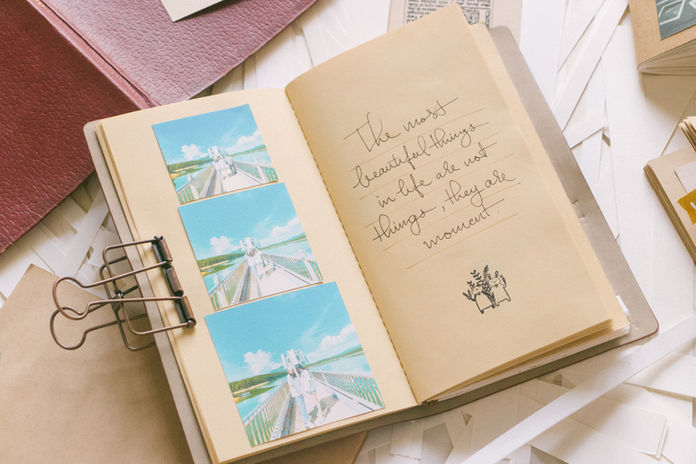 The most
beautiful things
in life are not
things, they are
moment.